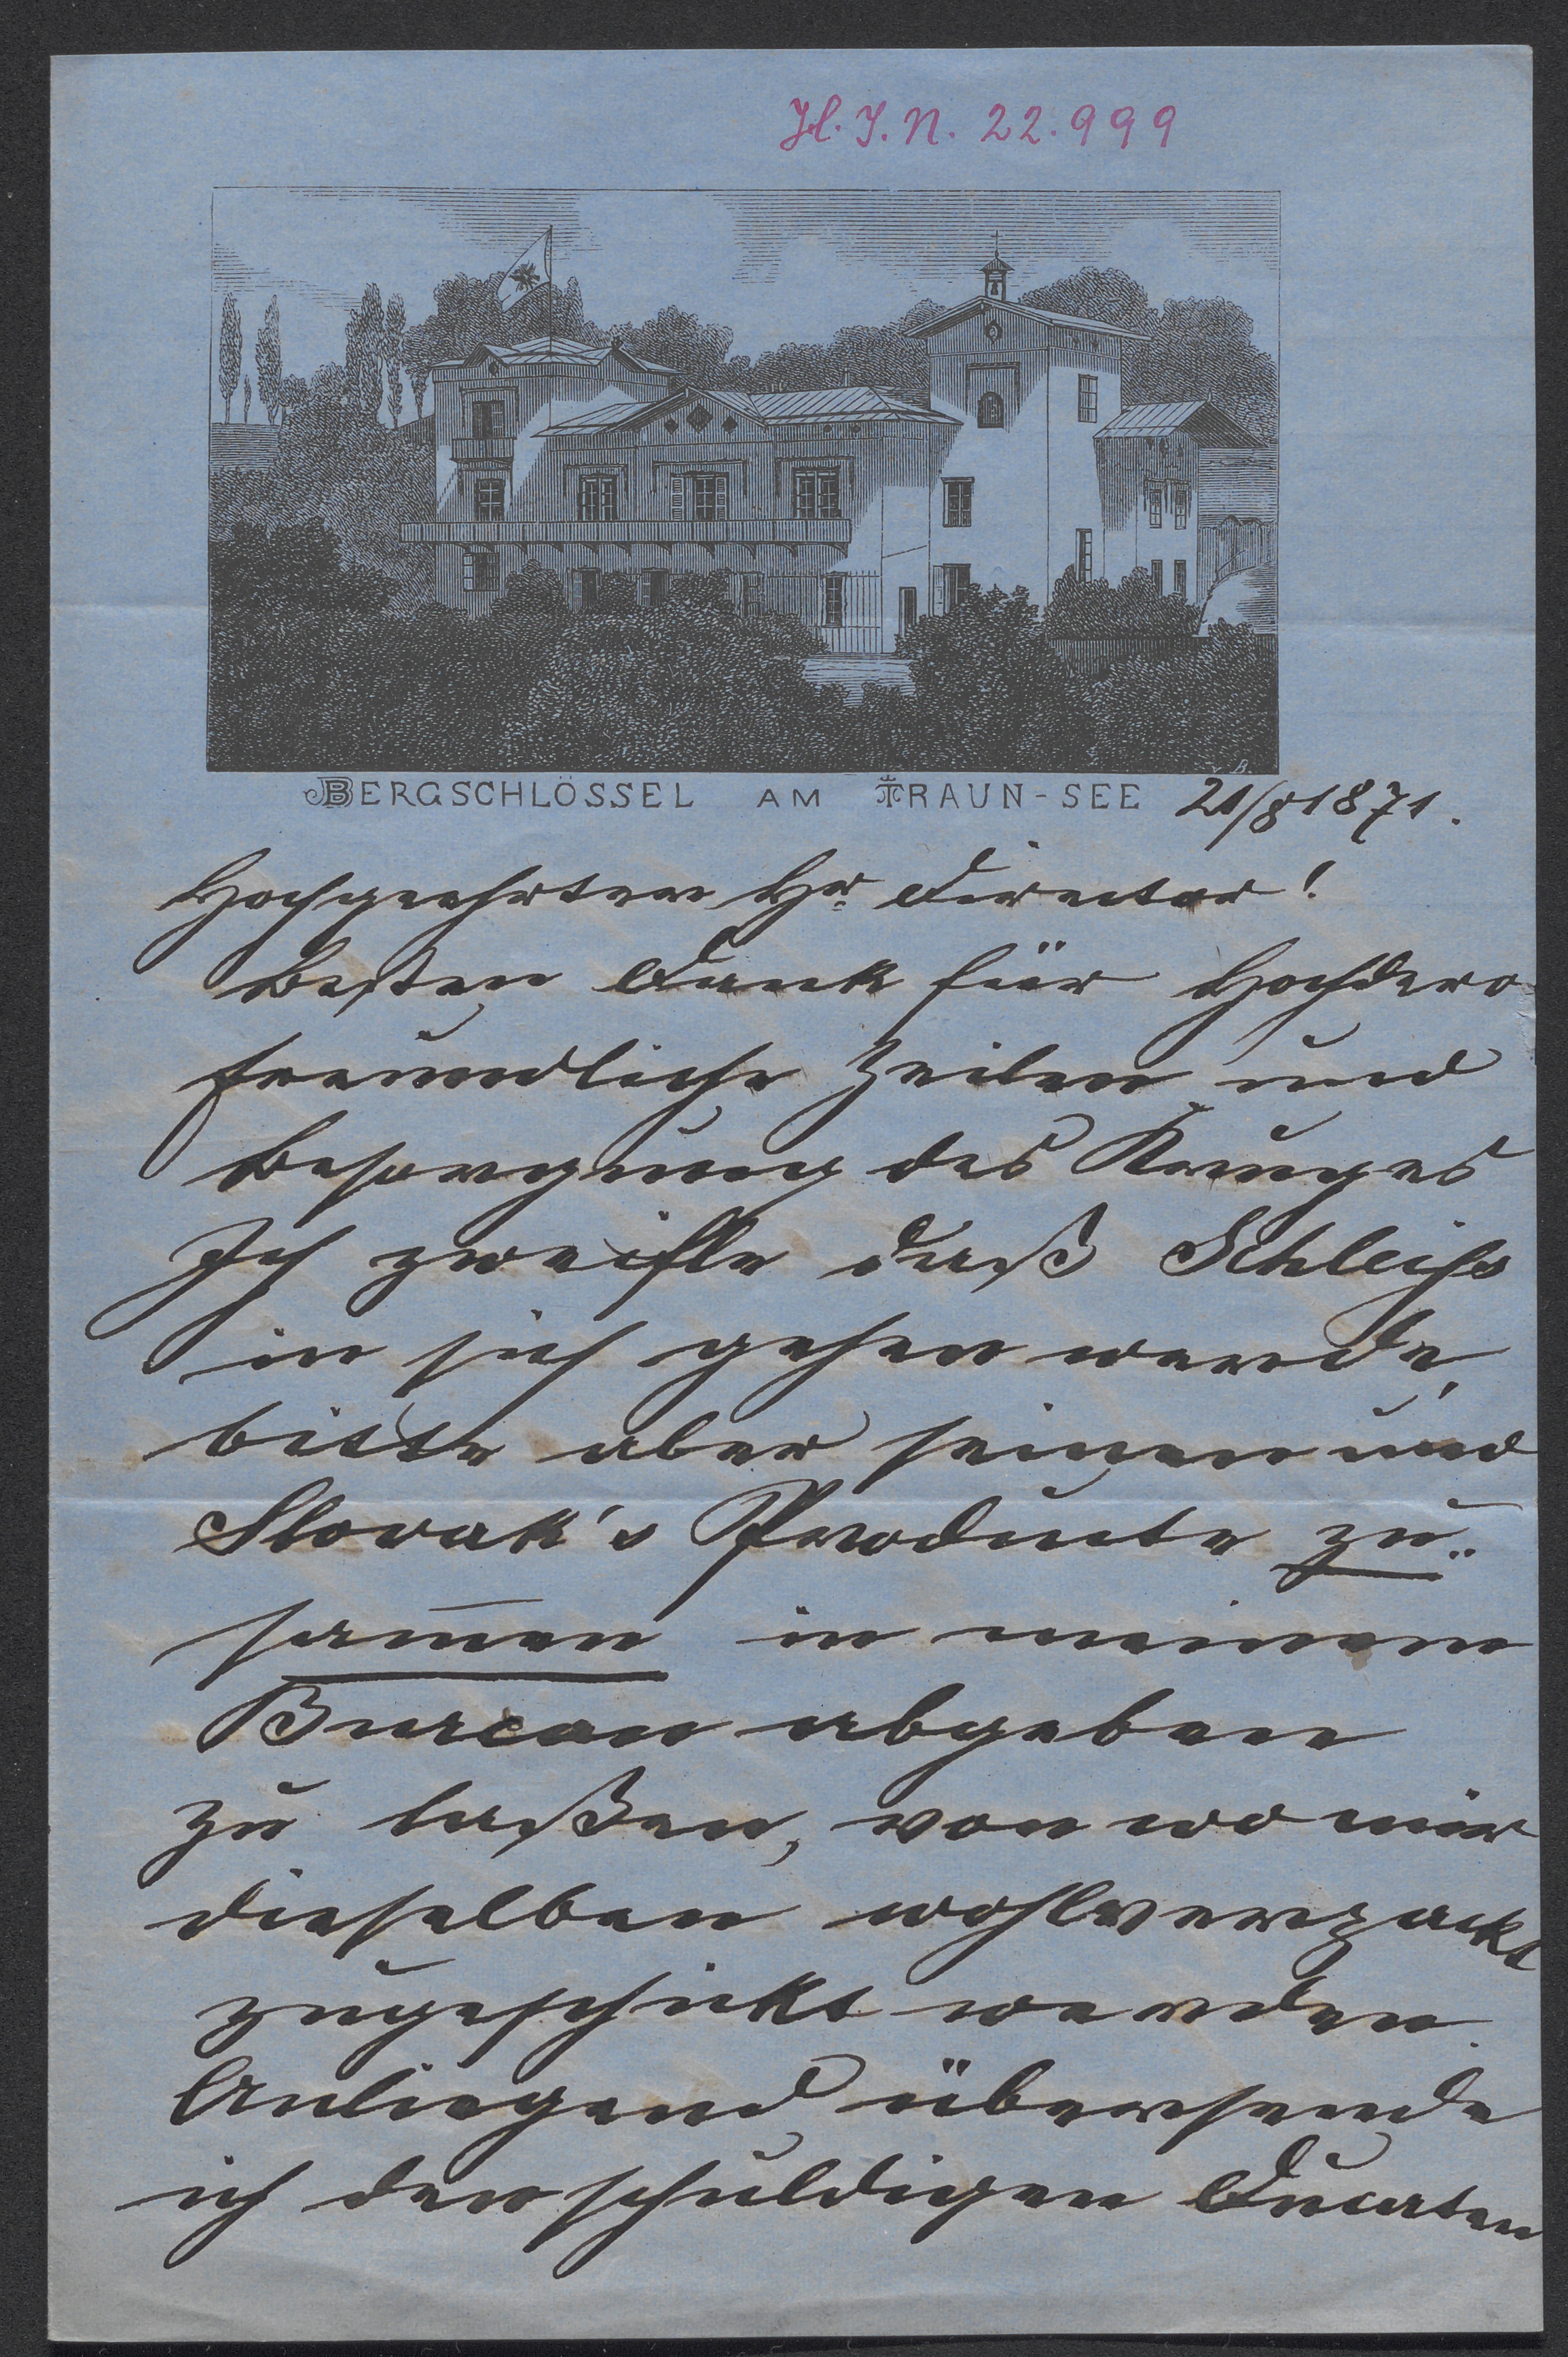 H. I. N. 22.999
v. B.
BERGSCHLÖSSEL AM TRAUN-SEE 21/8 1871.
Hochgeehrter Hr. Director!
Besten Dank für Hochdero
freundliche Zeilen und
Besorgung des Kruges
Ich zweifle daß Schleiss
in sich gehen werde,
bitte aber seinen und
Slovak's Producte zu-
sam̄en in meinem
Bureau abgeben
zu laßen, von wo mir
dieselben wohlverpackt
zugeschickt werden.
Anliegend übersende
ich den schuldigen Ducaten